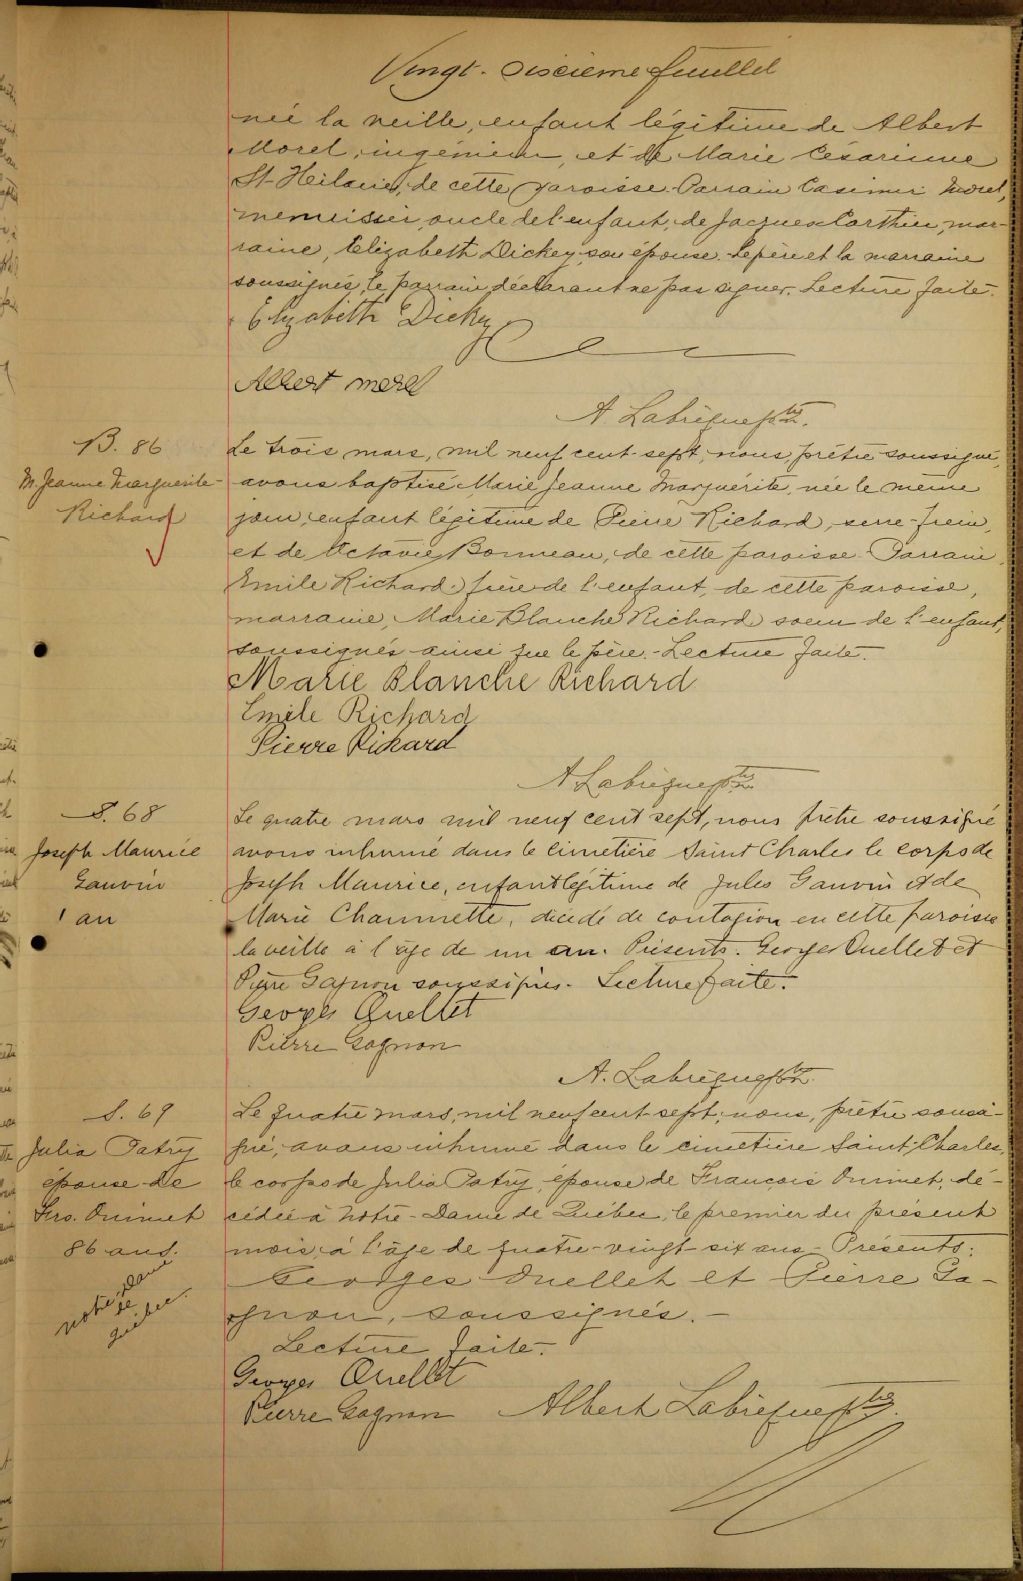 Vingt-sixième feuillet
née la veille, enfant légitime de Albert
Morel, ingénieur, et de Marie Césarinne
St-Heilaire, de cette paroisse. Parrain Casimir Morel,
menuisier, oncle de l'enfant, de Jacques Carthier, mar-
raine, Elizabeth Dickey, son épouse. Le père et la marraine
soussignés, le parrain déclarant ne pas signer. Lecture faite.
Elizabeth Dicky
Albert morel
A. Labrèque ptre
B. 86
M. Jeanne Marguerite
Richard
Le trois mars, mil neuf cent-sept, nous, prêtre soussigné,
avons baptisé Marie Jeanne Marguérite, née le même
jour, enfant légitime de Pierre Richard, serre-frein,
et de Octavie Bonneau, de cette paroisse. Parrain,
Emile Richard, frère de l'enfant, de cette paroisse,
marraine, Marie Blanche Richard soeur de l'enfant,
soussignés ainsi que le père. Lecture faite.
Marie Blanche Richard
Emile Richard
Pierre Richard
A Labrèque ptre
S. 68
Joseph Maurice
Gauvin
1 an
Le quatre mars mil neuf cent sept, nous prêtre soussigné
avons inhumé dans le cimetière Saint Charles le corps de
Joseph Maurice, enfant légitime de Jules Gauvin et de
Marie Chaumette, décédé de contagion en cette paroisse
la veille à l'âge de un an. Présents. Georges Ouellet et
Pierre Gagnon soussignés. Lecture faite.
Georges Ouellet
Pierre Gagnon
A. Labrèque ptre
S. 69
Julia Patry
épouse de
Frs. Ouimet
86 ans.
Notre-Dame
de
Québec.
Le quatre mars, mil neuf cent-sept, nous, prêtre soussi-
gné, avons inhumé dans le cimetière Saint-Charles,
le corps de Julia Patry, épouse de François Ouimet, dé-
cédée à Notre-Dame de Québec, le premier du présent
mois, à l'âge de quatre-vingt-six ans. Présents:
Georges Ouellet et Pierre Ga-
gnon, soussignés.-
Lecture faite.-
Georges Ouellet
Pierre Gagnon Albert Labrèque ptre.